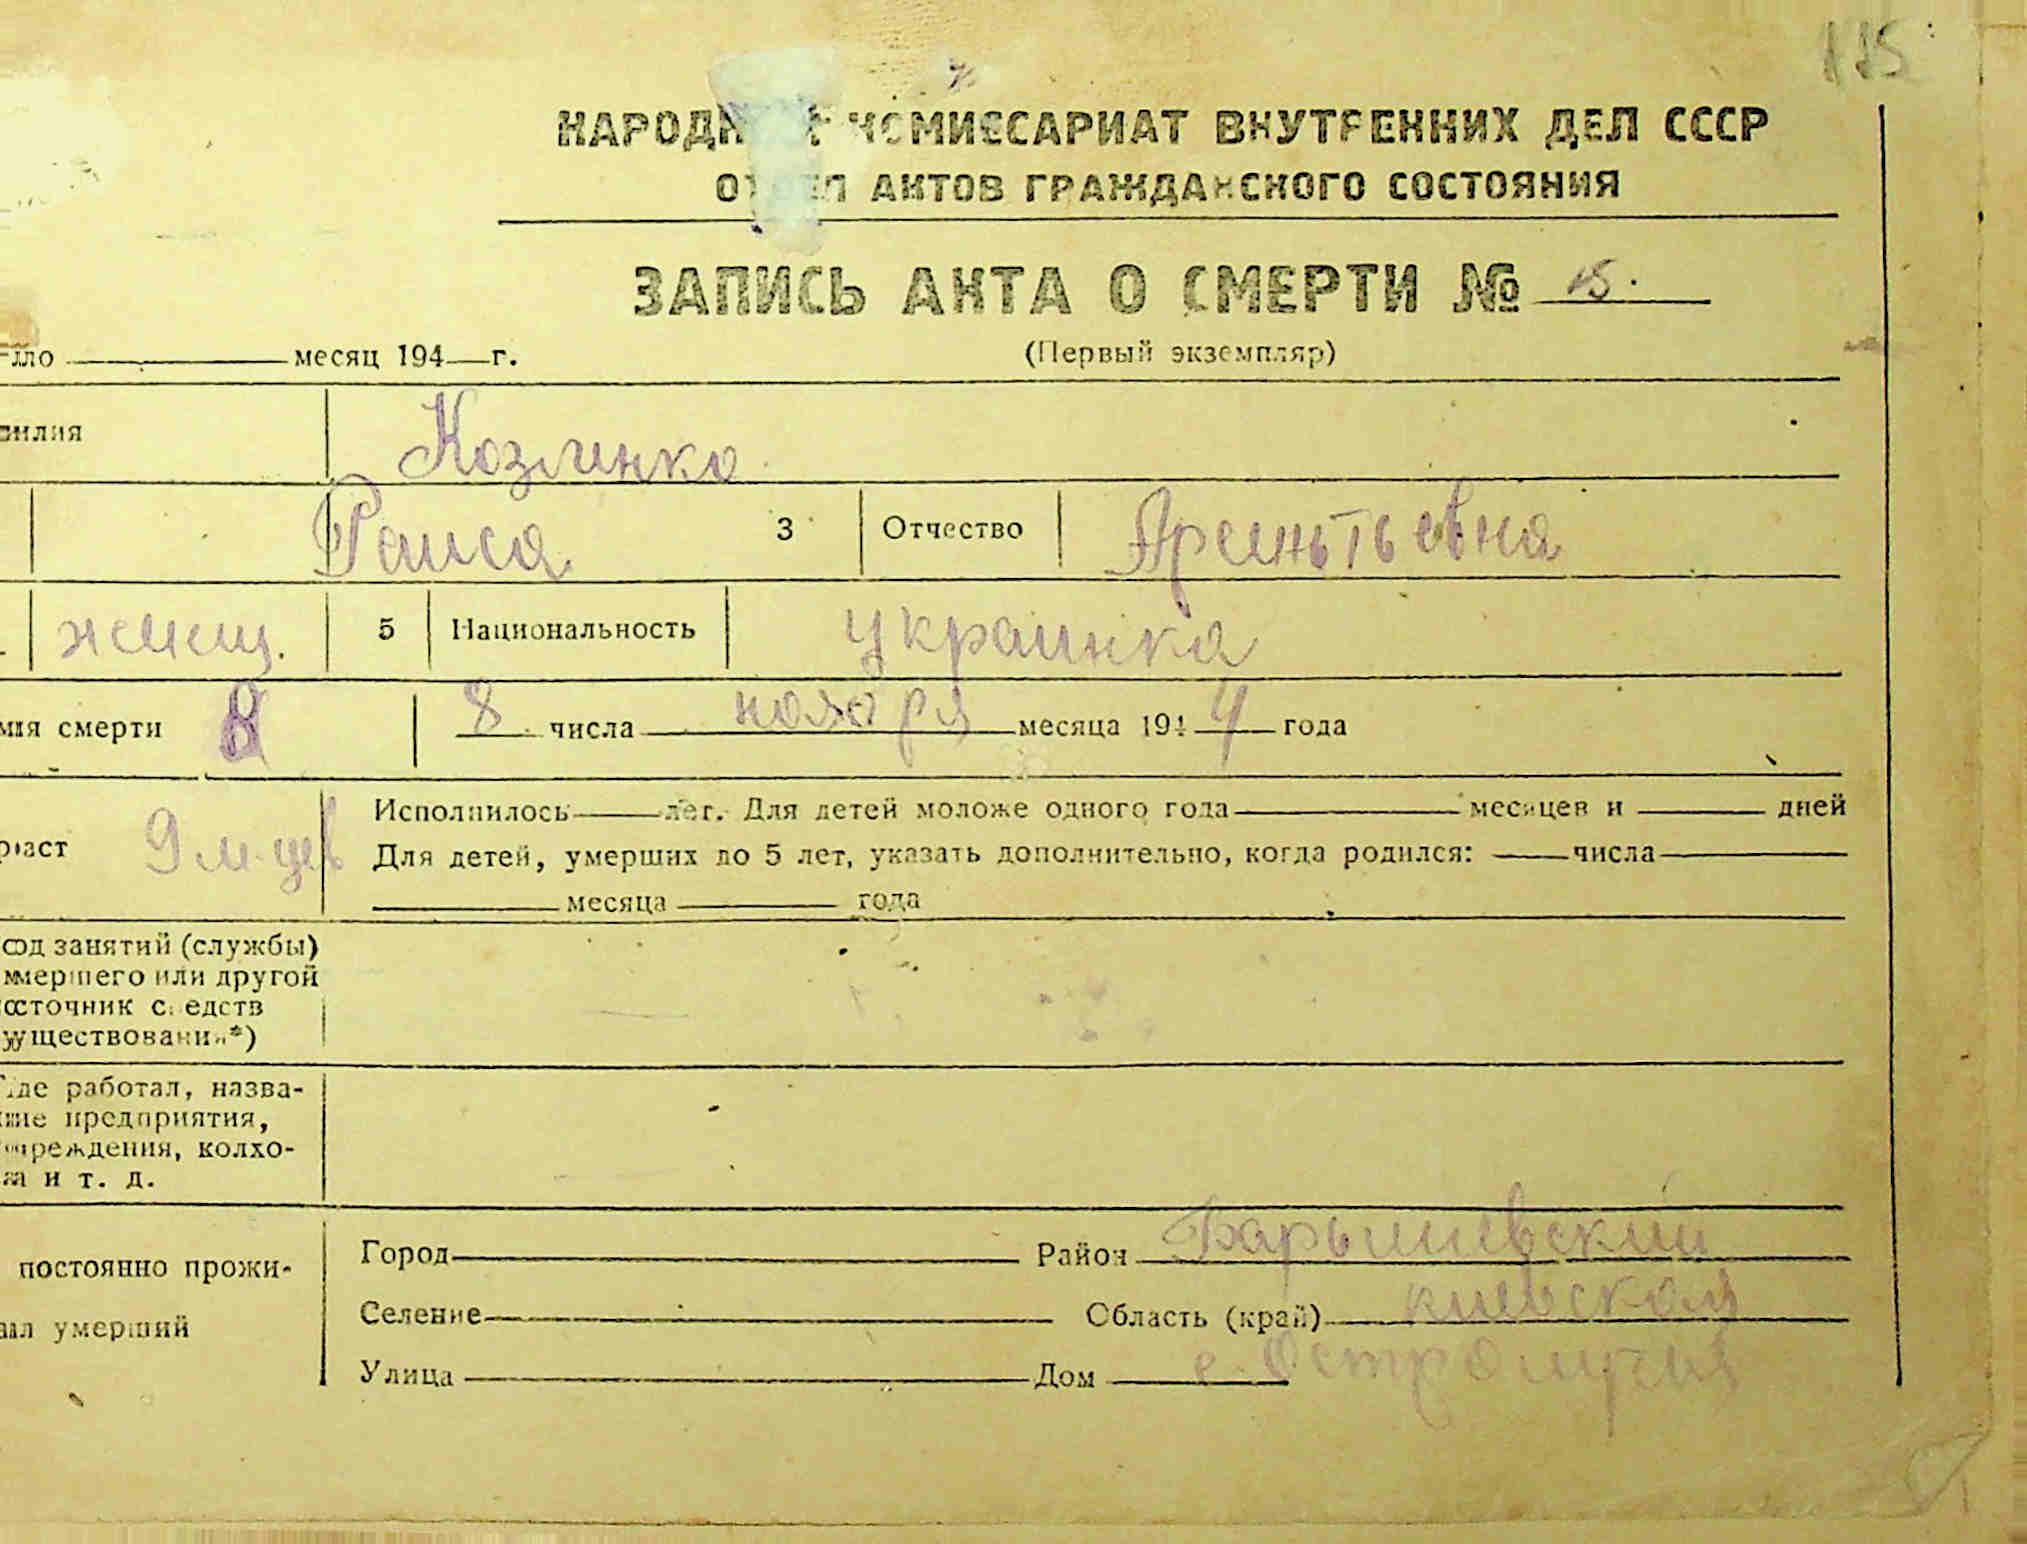 115
НАРОДНЫЙ КОМИССАРИАТ ВНУТРЕННИХ ДЕЛ СССР
ОТДЕЛ АКТОВ ГРАЖДАНСКОГО СОСТОЯНИЯ
ЗАПИСЬ АКТА О СМЕРТИ №
месяц 194 г. (Первый экземпляр)
милия Козлинко
Раиса 3 Отчество
женщ. 5 Национальность украинка
мя смерти 8 8 числа ноября месяца 194 4 года
Исполнилось лет. Для детей моложе одного года месяцев и дней
раст 9 м-цев Для детей, умерших до 5 лет, указать дополнительно, когда родился: числа
месяца года
од занятий (службы)
умершего или другой
источник средств
существования*)
Где работал, назва-
ние предприятия,
учреждения, колхо-
за и т. д.
постоянно прожи- Город Район Барышевский
вал умерший Селение Область (край) киевской
Улица Дом с. Остролучья